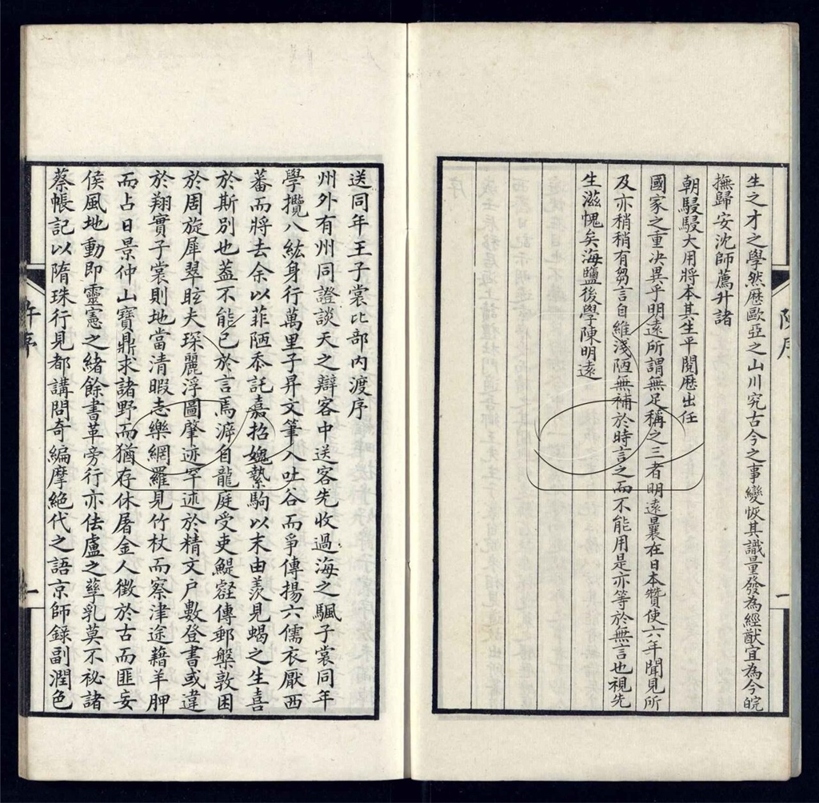 陳序
一
生之才之學然歷歐亞之山川究古今之事變恢其識量發為經猷宜為今皖
撫歸安沈師薦升諸
朝駸駸大用將本其生平閱歷出任
國家之重決異乎明遠所謂無足稱之三者明遠曩在日本贊使六年聞見所
及亦稍稍有芻言自維淺陋無補於時言之而不能用是亦等於無言也視先
生滋愧矣海鹽後學陳明遠
送同年王子裳比部內渡序
州外有州同證談天之辯客中送客先收過海之颿子裳同年
學攬八紘身行萬里子昇文筆入吐谷而爭傳揚六儒衣厭西
蕃而將去余以菲陋忝託嘉招媿縶駒以末由羨見蝎之生喜
於斯別也蓋不能已於言焉游自龍庭受吏鯷壑傳郵槃敦困
於周旋犀翠眩夫琛麗浮圖肇迹罕述於精文户數登書或違
於翔實子裳則地當清暇志樂網羅見竹杖而察津途藉羊胛
而占日景仲山寶鼎求諸野而猶存休屠金人徵於古而匪妄
侯風地動即靈憲之緒餘書革旁行亦佉盧之孳乳莫不祕諸
蔡帳記以隋珠行見都講問奇編摩絕代之語京師録副潤色
許序
一